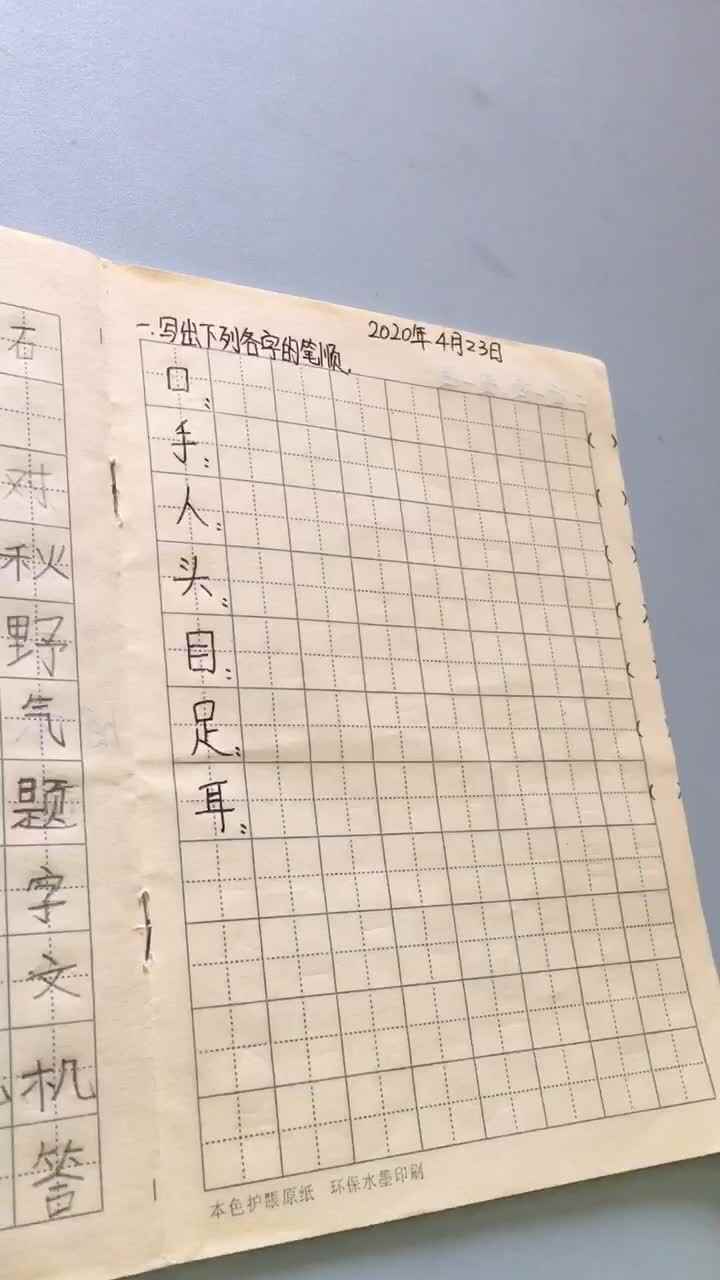 石
对
秋
野
气
题
字
文
机
答
一.写出下列各字的笔顺.
2020年4月23日
口:
手:
人:
头:
目:
足:
耳:
( )
( )
( )
( )
( )
( )
( )
本色护眼原纸 环保水墨印刷